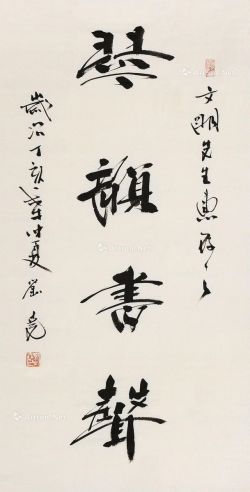 文明先生惠存
琴韻書聲
歲次丁亥年仲夏